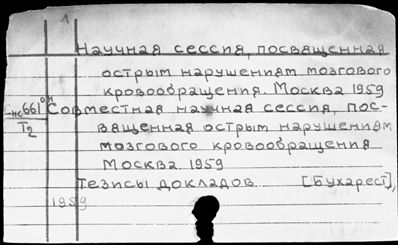 1
Научная сессия, посвященная
острым нарушениям мозгового
кровообращения. Москва 1959
нс661
Т2
Совместная научная сессия, пос-
вященная острым нарушениям
мозгового кровообращения
Москва 1959
Тезисы докладов. [Бухарест],
1959